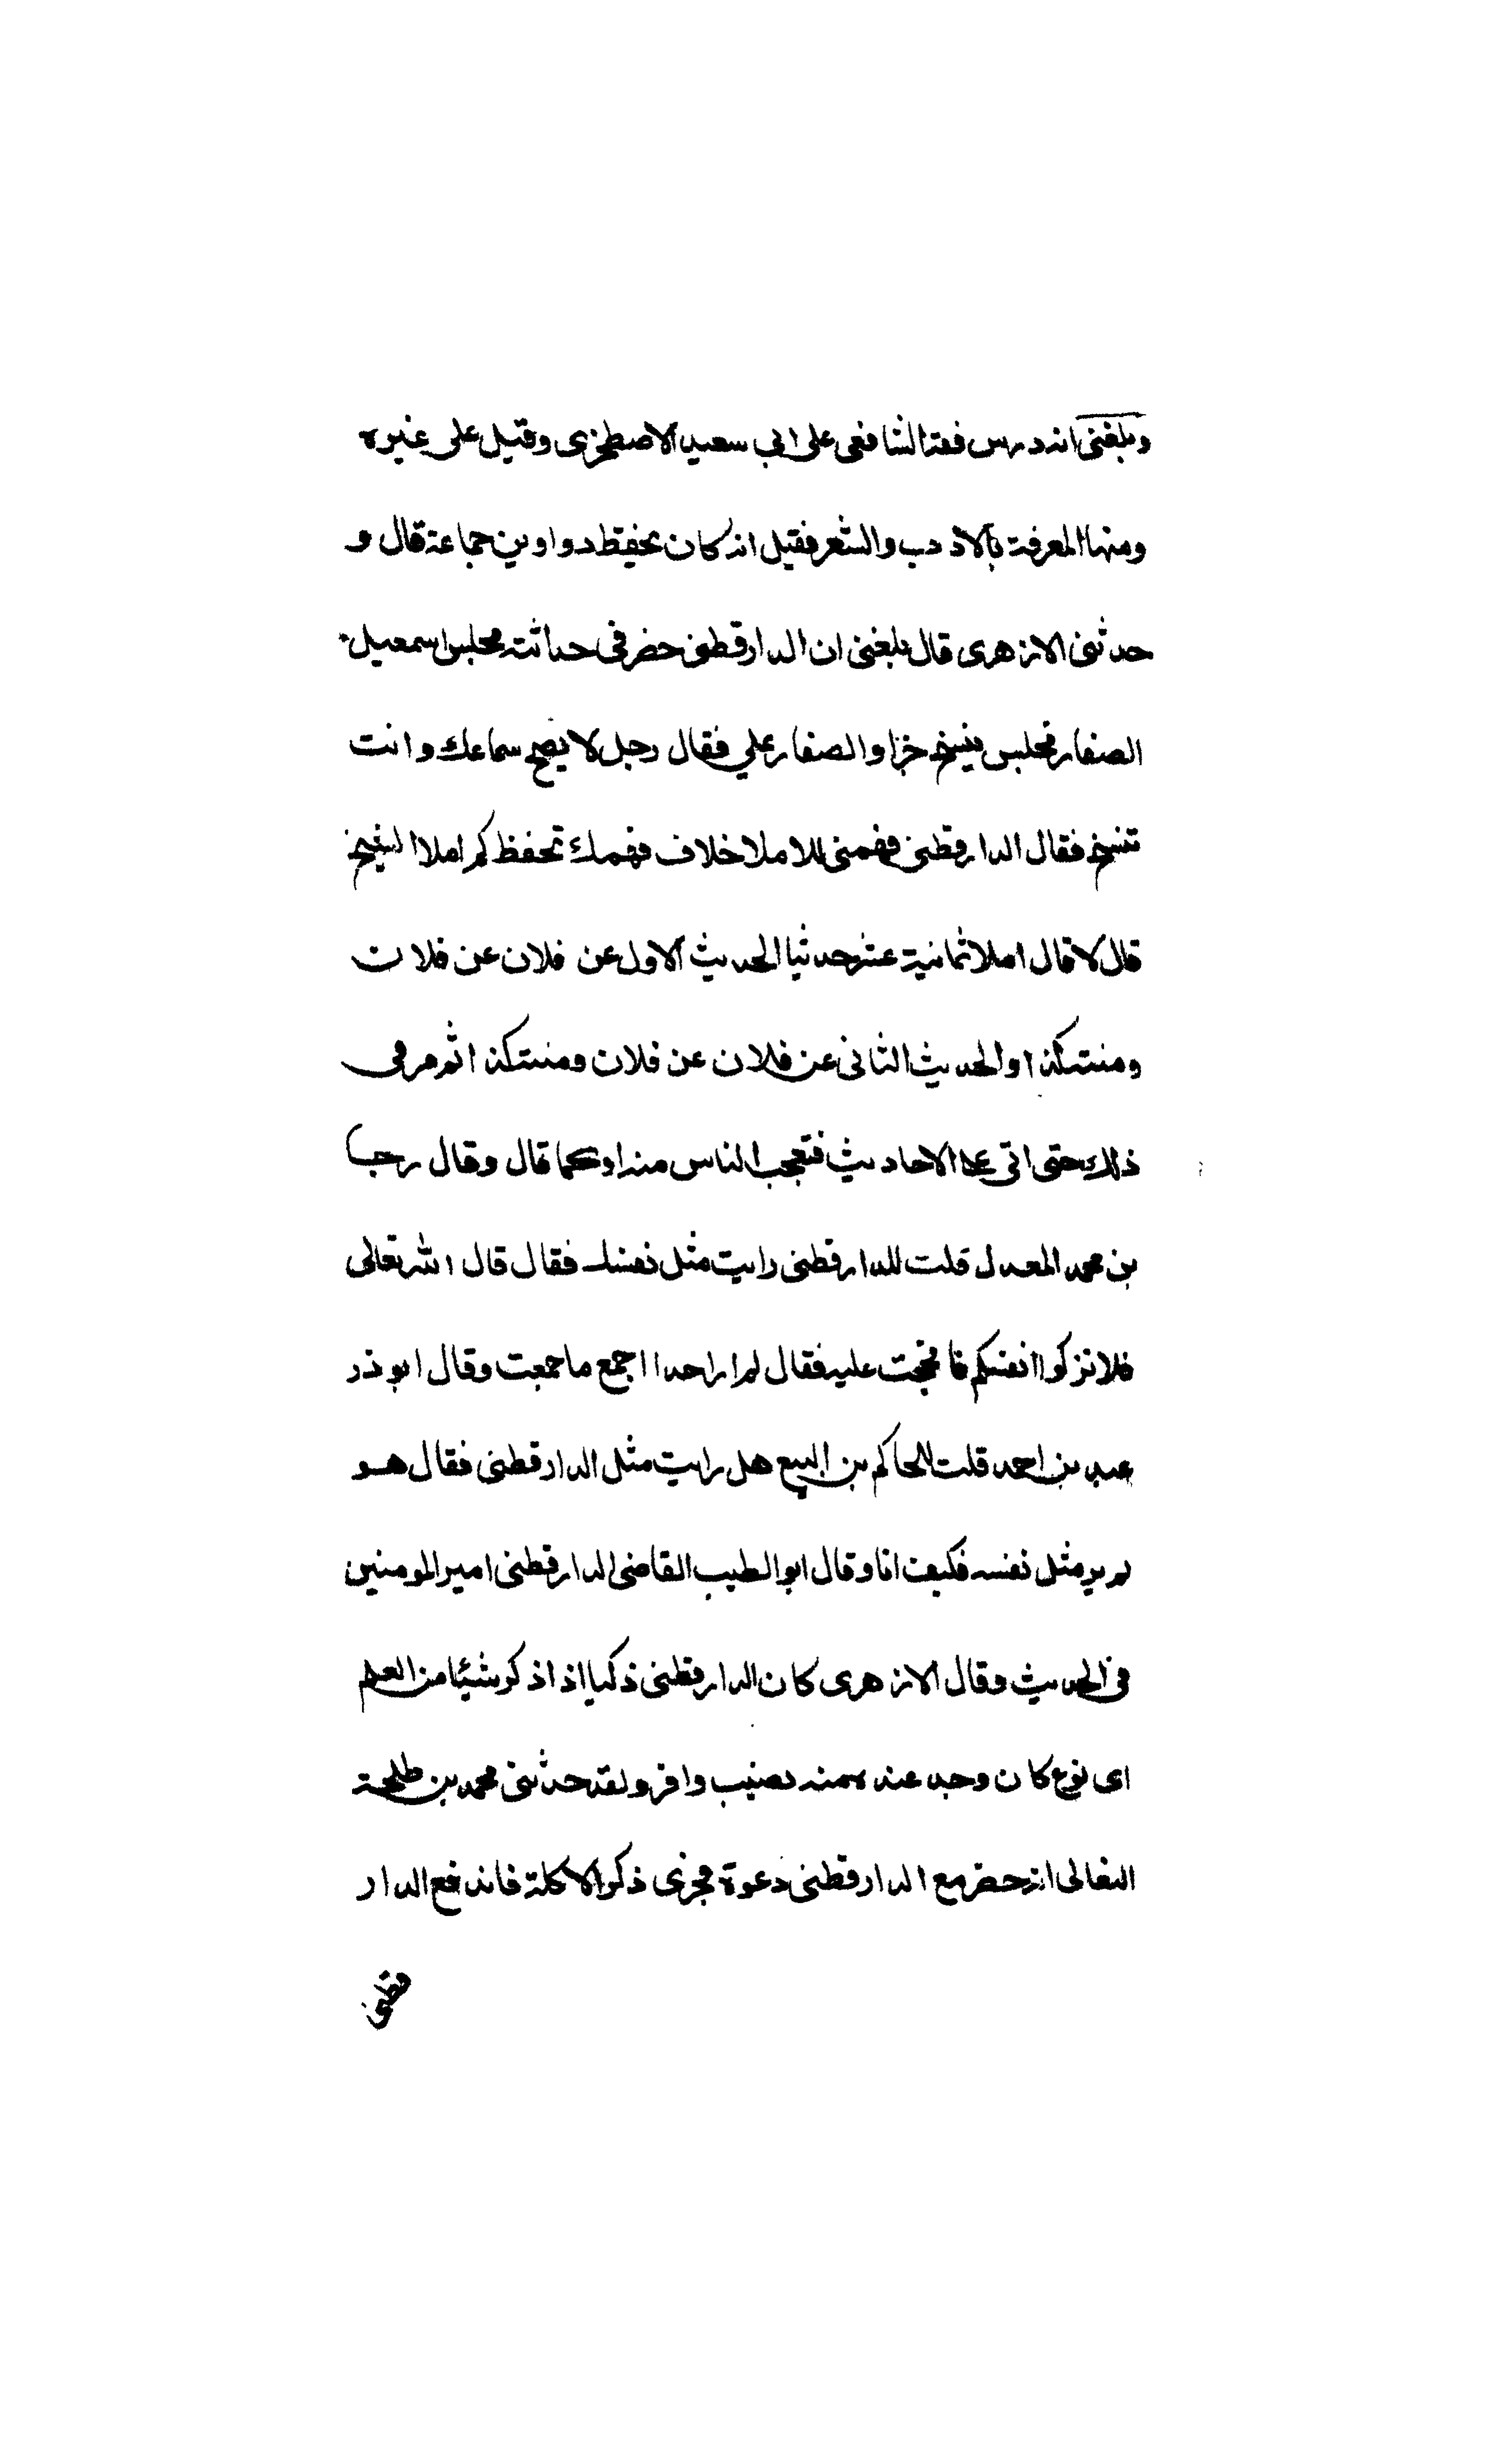 وبلغني انه درس فقه الشافعي على ابي سعيد الاصطخري وقيل على غيره
ومنها المعرفة بالادب والشعر فقيل انه كان يحفظ دواوين جماعة قال و
حدثني الازهري قال بلغني ان الدارقطني حضر في حداثته مجلس اسمعيل
الصفار فجلس ينسخ جزا والصفار يملي فقال رجل لا يصح سماعك وانت
تنسخ فقال الدارقطني فهمي للاملا خلاف فهمك تحفظ كم املا الشيخ
قال لا قال املا ثمانية عشر حديثا الحديث الاول عن فلان عن فلان
ومتنه كذا والحديث الثاني عن فلان عن فلان ومتنه كذا ثم مر في
ذلك حتى اتى على الاحاديث فتعجب الناس منه او كما قال وقال رجا
بن محمد المعدل قلت للدارقطني رايت مثل نفسك فقال قال الله تعالى
فلا تزكوا انفسكم فالححت عليه فقال لم ار احدا جمع ما جمعت وقال ابو ذر
عبد بن احمد قلت للحاكم بن البيع هل رايت مثل الدارقطني فقال هو
لم ير مثل نفسه فكيف انا وقال ابو الطيب القاضي الدارقطني امير المومنين
في الحديث وقال الازهري كان الدارقطني ذكيا اذا ذكر شيئا من العلم
اي نوع كان وجد عنده منه نصيب وافر ولقد حدثني محمد بن طلحة
النعالي انه حضر مع الدارقطني دعوة فجرى ذكر الاكلة فاندفع الدار
قطني